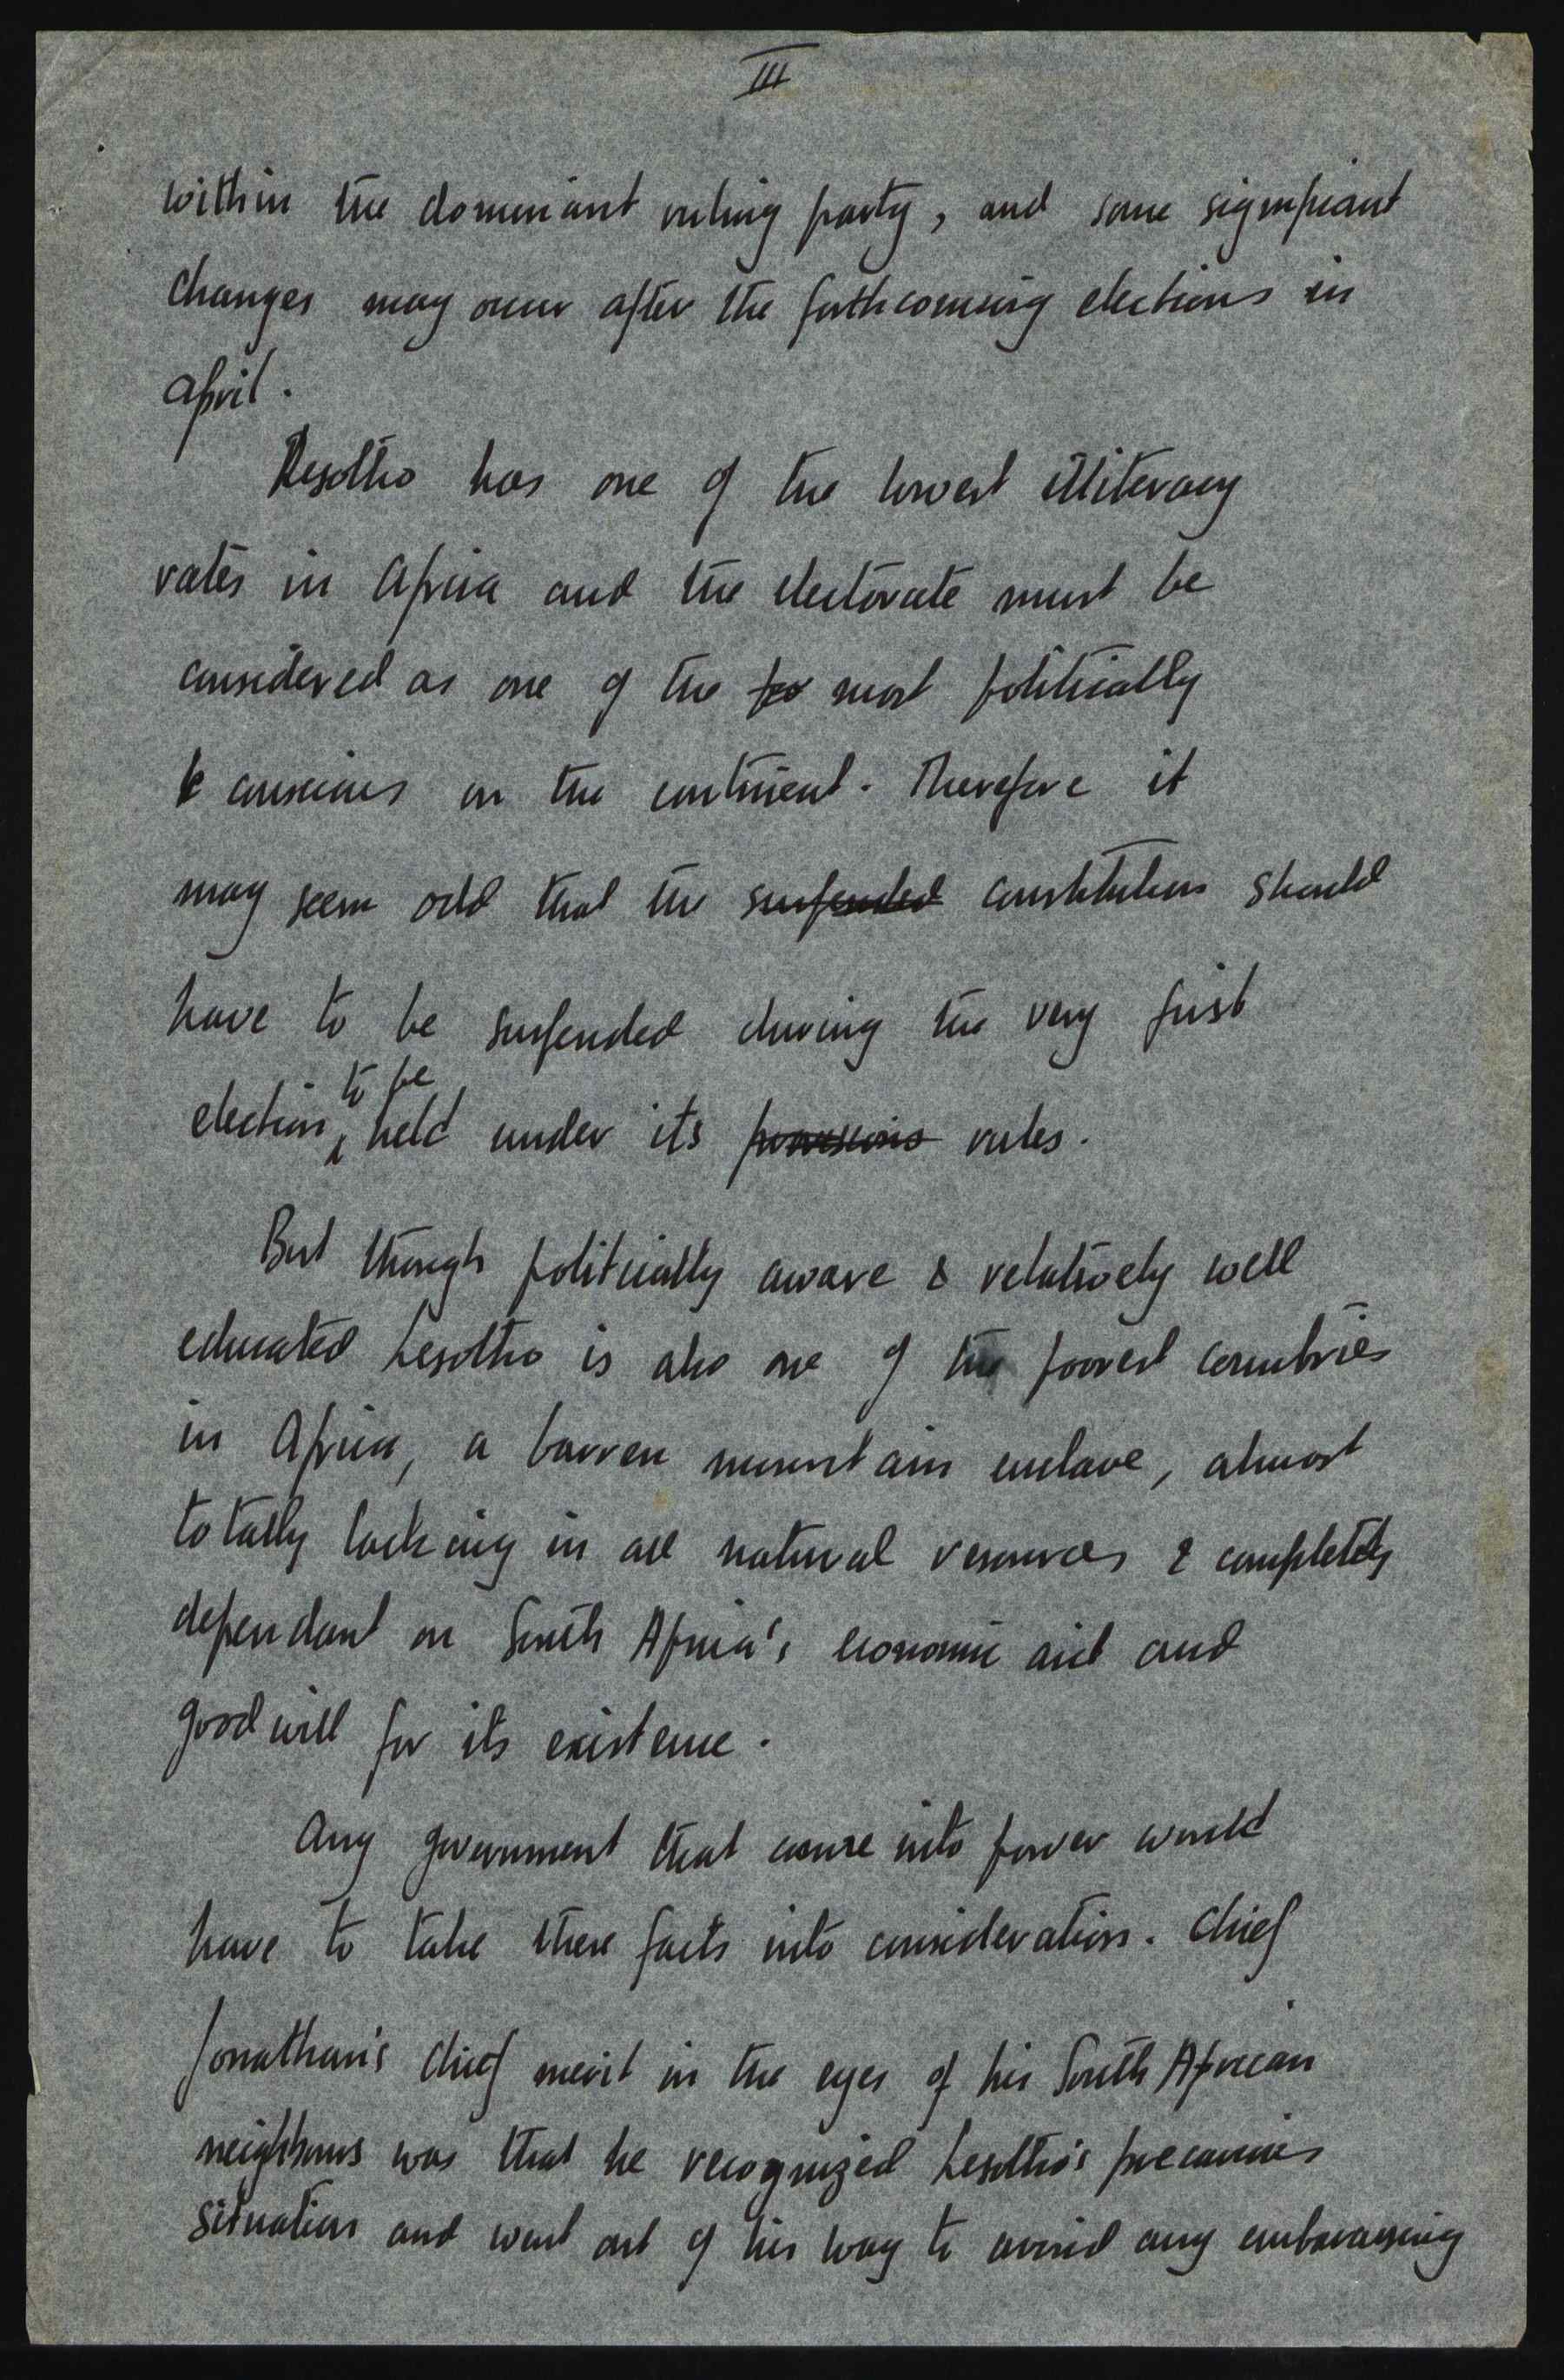 III
within the dominant ruling party, and some significant
changes may occur after the forthcoming elections in
April.
Lesotho has one of the lowest illiteracy
rates in Africa and the electorate must be
considered as one of the most politically
conscious on the continent. Therefore it
may seem odd that the suspended constitution should
have to be suspended during the very first
election to be held under its provisions rules.
But though politically aware & relatively well
educated Lesotho is also one of the poorest countries
in Africa, a barren mountain enclave, almost
totally lacking in all natural resources & completely
dependant on South Africa's economic aid and
goodwill for its existence.
Any government that came into power would
have to take these facts into consideration. Chief
Jonathan's chief merit in the eyes of his South African
neighbours was that he recognized Lesotho's precarious
situation and went out of his way to avoid any embarassing